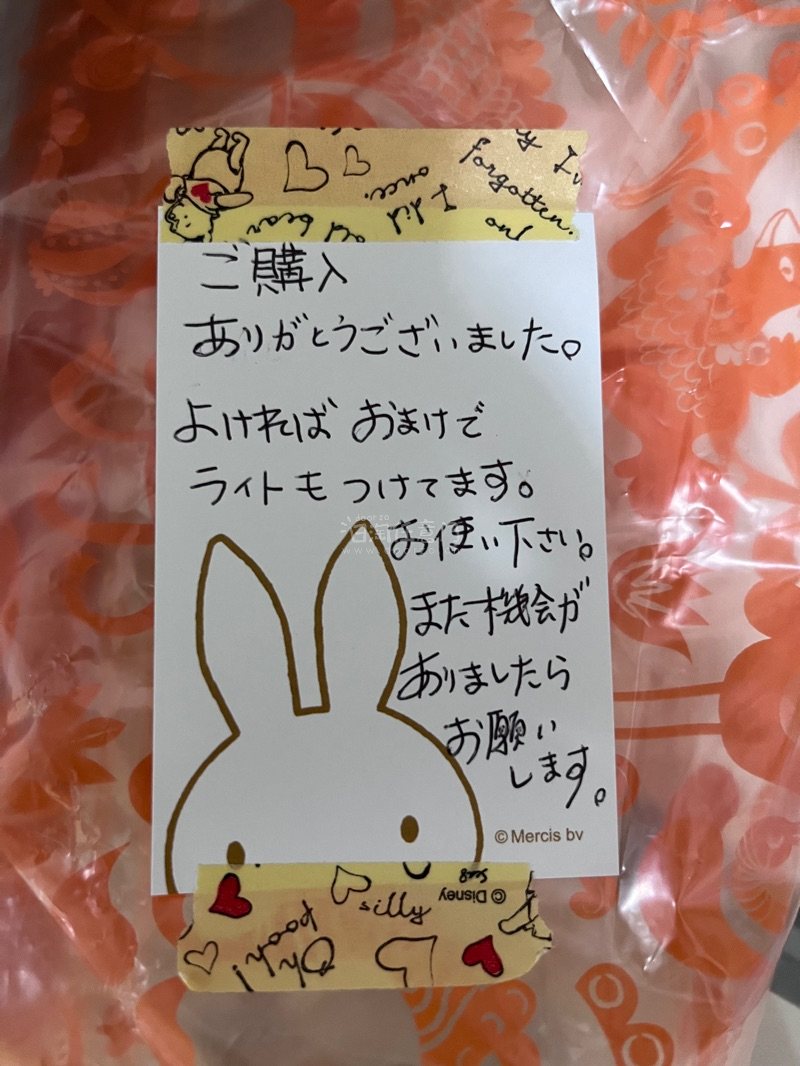 y I
forgotten.
once.
I did
on!
old bear
ご購入
ありがとうございました。
よければ おまけで
ライトも つけてます。
お使い下さい。
また機会が
ありましたら
お願い
します。
© Mercis bv
© Disney
silly
Oh!
pooh!